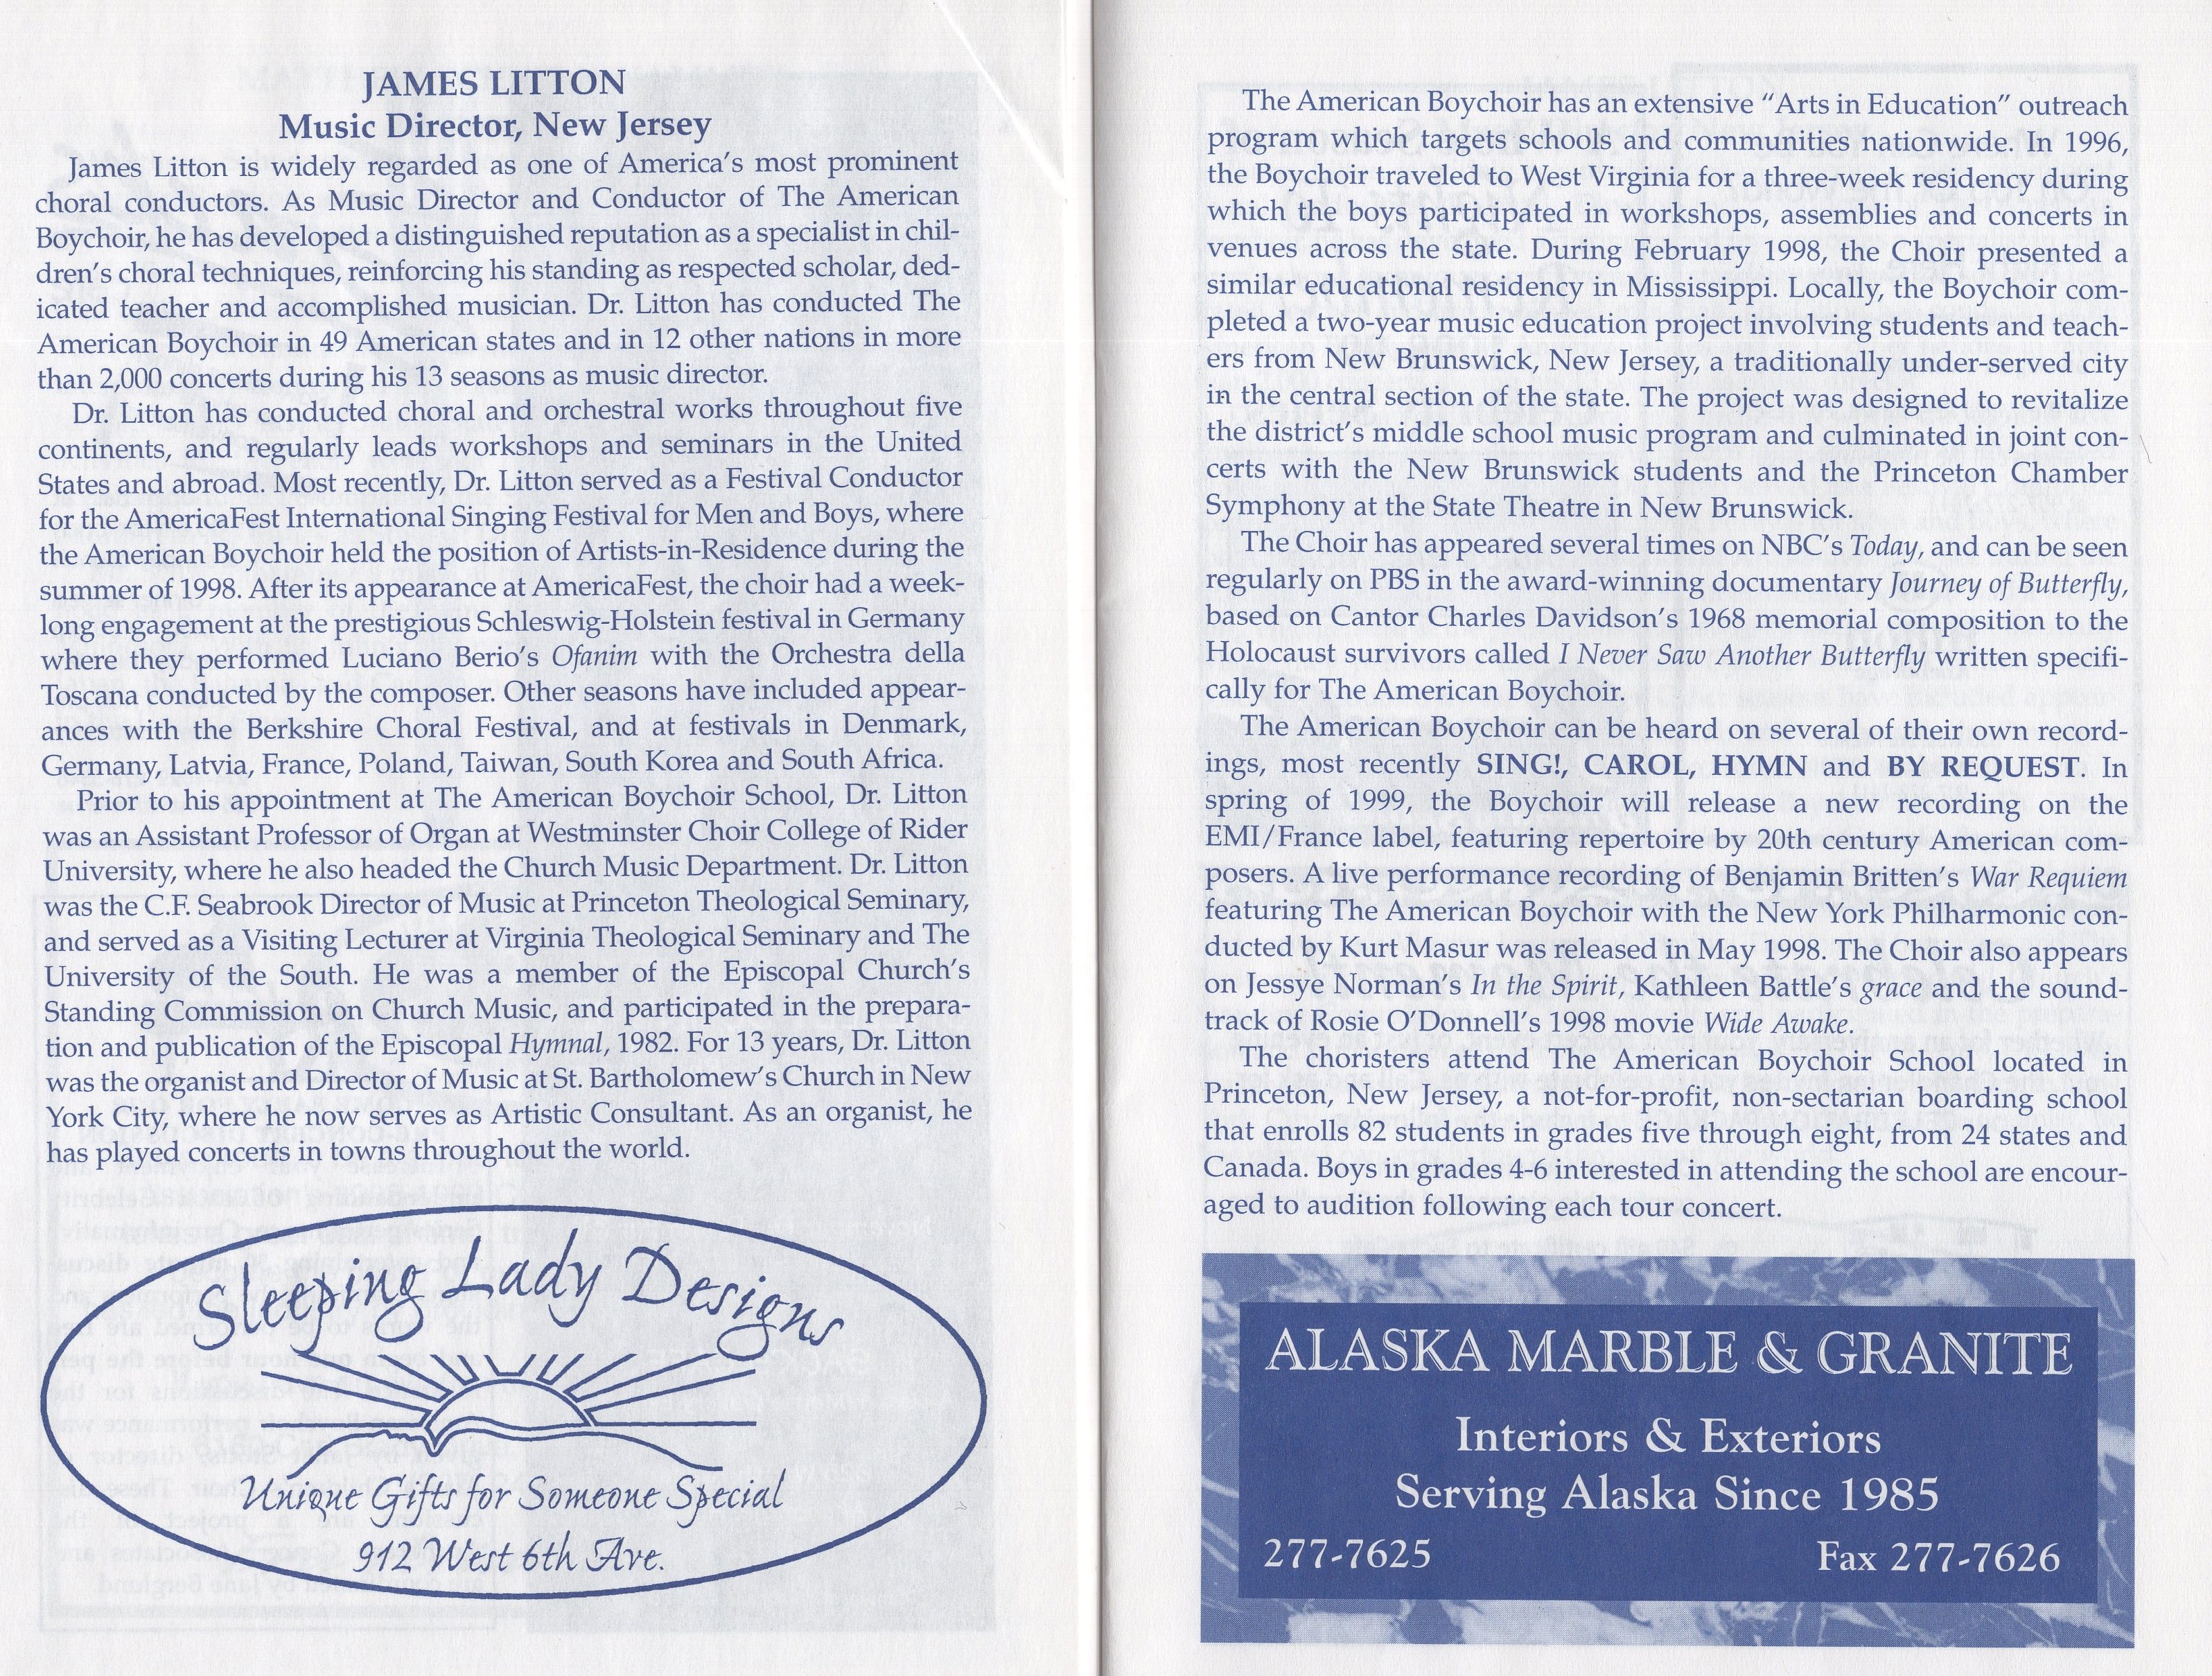 JAMES LITTON
Music Director, New Jersey
James Litton is widely regarded as one of America's most prominent
choral conductors. As Music Director and Conductor of The American
Boychoir, he has developed a distinguished reputation as a specialist in chil-
dren's choral techniques, reinforcing his standing as respected scholar, ded-
icated teacher and accomplished musician. Dr. Litton has conducted The
American Boychoir in 49 American states and in 12 other nations in more
than 2,000 concerts during his 13 seasons as music director.
Dr. Litton has conducted choral and orchestral works throughout five
continents, and regularly leads workshops and seminars in the United
States and abroad. Most recently, Dr. Litton served as a Festival Conductor
for the AmericaFest International Singing Festival for Men and Boys, where
the American Boychoir held the position of Artists-in-Residence during the
summer of 1998. After its appearance at AmericaFest, the choir had a week-
long engagement at the prestigious Schleswig-Holstein festival in Germany
where they performed Luciano Berio's Ofanim with the Orchestra della
Toscana conducted by the composer. Other seasons have included appear-
ances with the Berkshire Choral Festival, and at festivals in Denmark,
Germany, Latvia, France, Poland, Taiwan, South Korea and South Africa.
Prior to his appointment at The American Boychoir School, Dr. Litton
was an Assistant Professor of Organ at Westminster Choir College of Rider
University, where he also headed the Church Music Department. Dr. Litton
was the C.F. Seabrook Director of Music at Princeton Theological Seminary,
and served as a Visiting Lecturer at Virginia Theological Seminary and The
University of the South. He was a member of the Episcopal Church's
Standing Commission on Church Music, and participated in the prepara-
tion and publication of the Episcopal Hymnal, 1982. For 13 years, Dr. Litton
was the organist and Director of Music at St. Bartholomew's Church in New
York City, where he now serves as Artistic Consultant. As an organist, he
has played concerts in towns throughout the world.
Sleeping Lady Designs
Unique Gifts for Someone Special
912 West 6th Ave.
The American Boychoir has an extensive "Arts in Education" outreach
program which targets schools and communities nationwide. In 1996,
the Boychoir traveled to West Virginia for a three-week residency during
which the boys participated in workshops, assemblies and concerts in
venues across the state. During February 1998, the Choir presented a
similar educational residency in Mississippi. Locally, the Boychoir com-
pleted a two-year music education project involving students and teach-
ers from New Brunswick, New Jersey, a traditionally under-served city
in the central section of the state. The project was designed to revitalize
the district's middle school music program and culminated in joint con-
certs with the New Brunswick students and the Princeton Chamber
Symphony at the State Theatre in New Brunswick.
The Choir has appeared several times on NBC's Today, and can be seen
regularly on PBS in the award-winning documentary Journey of Butterfly,
based on Cantor Charles Davidson's 1968 memorial composition to the
Holocaust survivors called I Never Saw Another Butterfly written specifi-
cally for The American Boychoir.
The American Boychoir can be heard on several of their own record-
ings, most recently SING!, CAROL, HYMN and BY REQUEST. In
spring of 1999, the Boychoir will release a new recording on the
EMI/France label, featuring repertoire by 20th century American com-
posers. A live performance recording of Benjamin Britten's War Requiem
featuring The American Boychoir with the New York Philharmonic con-
ducted by Kurt Masur was released in May 1998. The Choir also appears
on Jessye Norman's In the Spirit, Kathleen Battle's grace and the sound-
track of Rosie O'Donnell's 1998 movie Wide Awake.
The choristers attend The American Boychoir School located in
Princeton, New Jersey, a not-for-profit, non-sectarian boarding school
that enrolls 82 students in grades five through eight, from 24 states and
Canada. Boys in grades 4-6 interested in attending the school are encour-
aged to audition following each tour concert.
ALASKA MARBLE & GRANITE
Interiors & Exteriors
Serving Alaska Since 1985
277-7625
Fax 277-7626